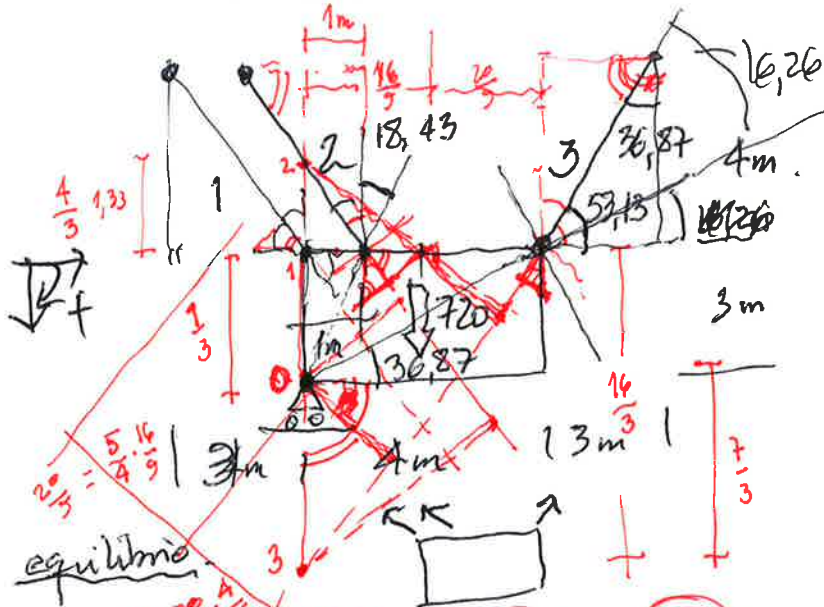 1m
16/9
20/9
16,26
2
18,43
2
3
36,87
4m.
4/3 1,33
1
53,13
1
3m
1/3
720
1m
36,87
0
16/3
7/3
20/9 = 5/4 · 16/9
4m
3m
3
equilibrio